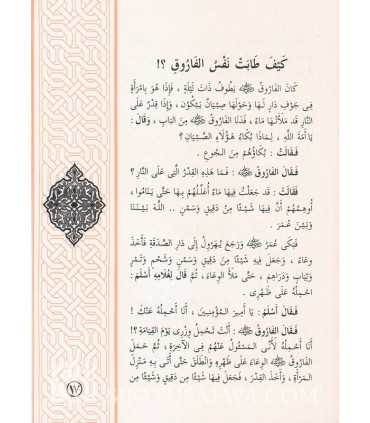 كَيْفَ طَابَتْ نَفْسُ الفَارُوقِ ؟!
كَانَ الفَارُوقُ ﷺ يَطُوفُ ذَاتَ لَيْلَةٍ ، فَإِذَا هُوَ بِامْرَأَةٍ
فِي جَوْفِ دَارٍ لَهَا وَحَوْلَهَا صِبْيَانٌ يَبْكُونَ ، وَإِذَا قِدْرٌ عَلَى
النَّارِ قَد مَلَأَتْهَا مَاءً ، فَدَنَا الفَارُوقُ مِنَ البَابِ ، وَقَالَ :
يَا أَمَةَ اللَّهِ ، لِمَاذَا بُكَاءُ هَؤُلَاءِ الصِّبْيَانِ ؟
فَقَالَتْ : بُكَاؤُهُمْ مِنَ الجُوعِ .
فَقَالَ الفَارُوقُ : فَمَا هَذِهِ القِدْرُ الَّتِي عَلَى النَّارِ؟
فَقَالَتْ : قَد جَعَلْتُ فِيهَا مَاءً أُعَلِّلُهُمْ بِهَا حَتَّى يَنَامُوا ،
أُوهِمُهُمْ أَنَّ فِيهَا شَيْئًا مِنْ دَقِيقٍ وَسَمْنٍ .. اللَّهُ بَيْنَنَا
وَبَيْنَ عُمَرَ .
فَبَكَى عُمَرُ وَرَجَعَ يُهَرْوِلُ إِلَى دَارِ الصَّدَقَةِ فَأَخَذَ
وِعَاءً ، وَجَعَلَ فِيهِ شَيْئًا مِنْ دَقِيقٍ وَسَمْنٍ وَشَحْمٍ وَتَمْرٍ
وَثِيَابٍ وَدَرَاهِمَ ، حَتَّى مَلَأَ الوِعَاءَ ، ثُمَّ قَالَ لِغُلَامِهِ أَسْلَمَ :
احْمِلْهُ عَلَى ظَهْرِي .
فَقَالَ أَسْلَمُ : يَا أَمِيرَ المُؤْمِنِينَ ، أَنَا أَحْمِلُهُ عَنْكَ !
فَقَالَ الفَارُوقُ : أَنْتَ تَحْمِلُ وِزْرِي يَوْمَ القِيَامَةِ ؟!
أَنَا أَحْمِلُهُ لِأَنِّي المَسْئُولُ عَنْهُمْ فِي الآخِرَةِ ، ثُمَّ حَمَلَ
الفَارُوقُ الوِعَاءَ عَلَى ظَهْرِهِ وَانْطَلَقَ حَتَّى أَتَى بِهِ مَنْزِلَ
المَرْأَةِ ، وَأَخَذَ القِدْرَ ، فَجَعَلَ فِيهَا شَيْئًا مِنْ دَقِيقٍ وَشَيْئًا مِنْ